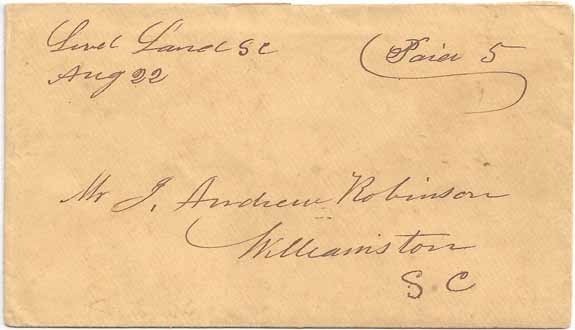 Level Land SC
Aug 22
Paid 5
Mr J. Andrew Robinson
Williamston
S C